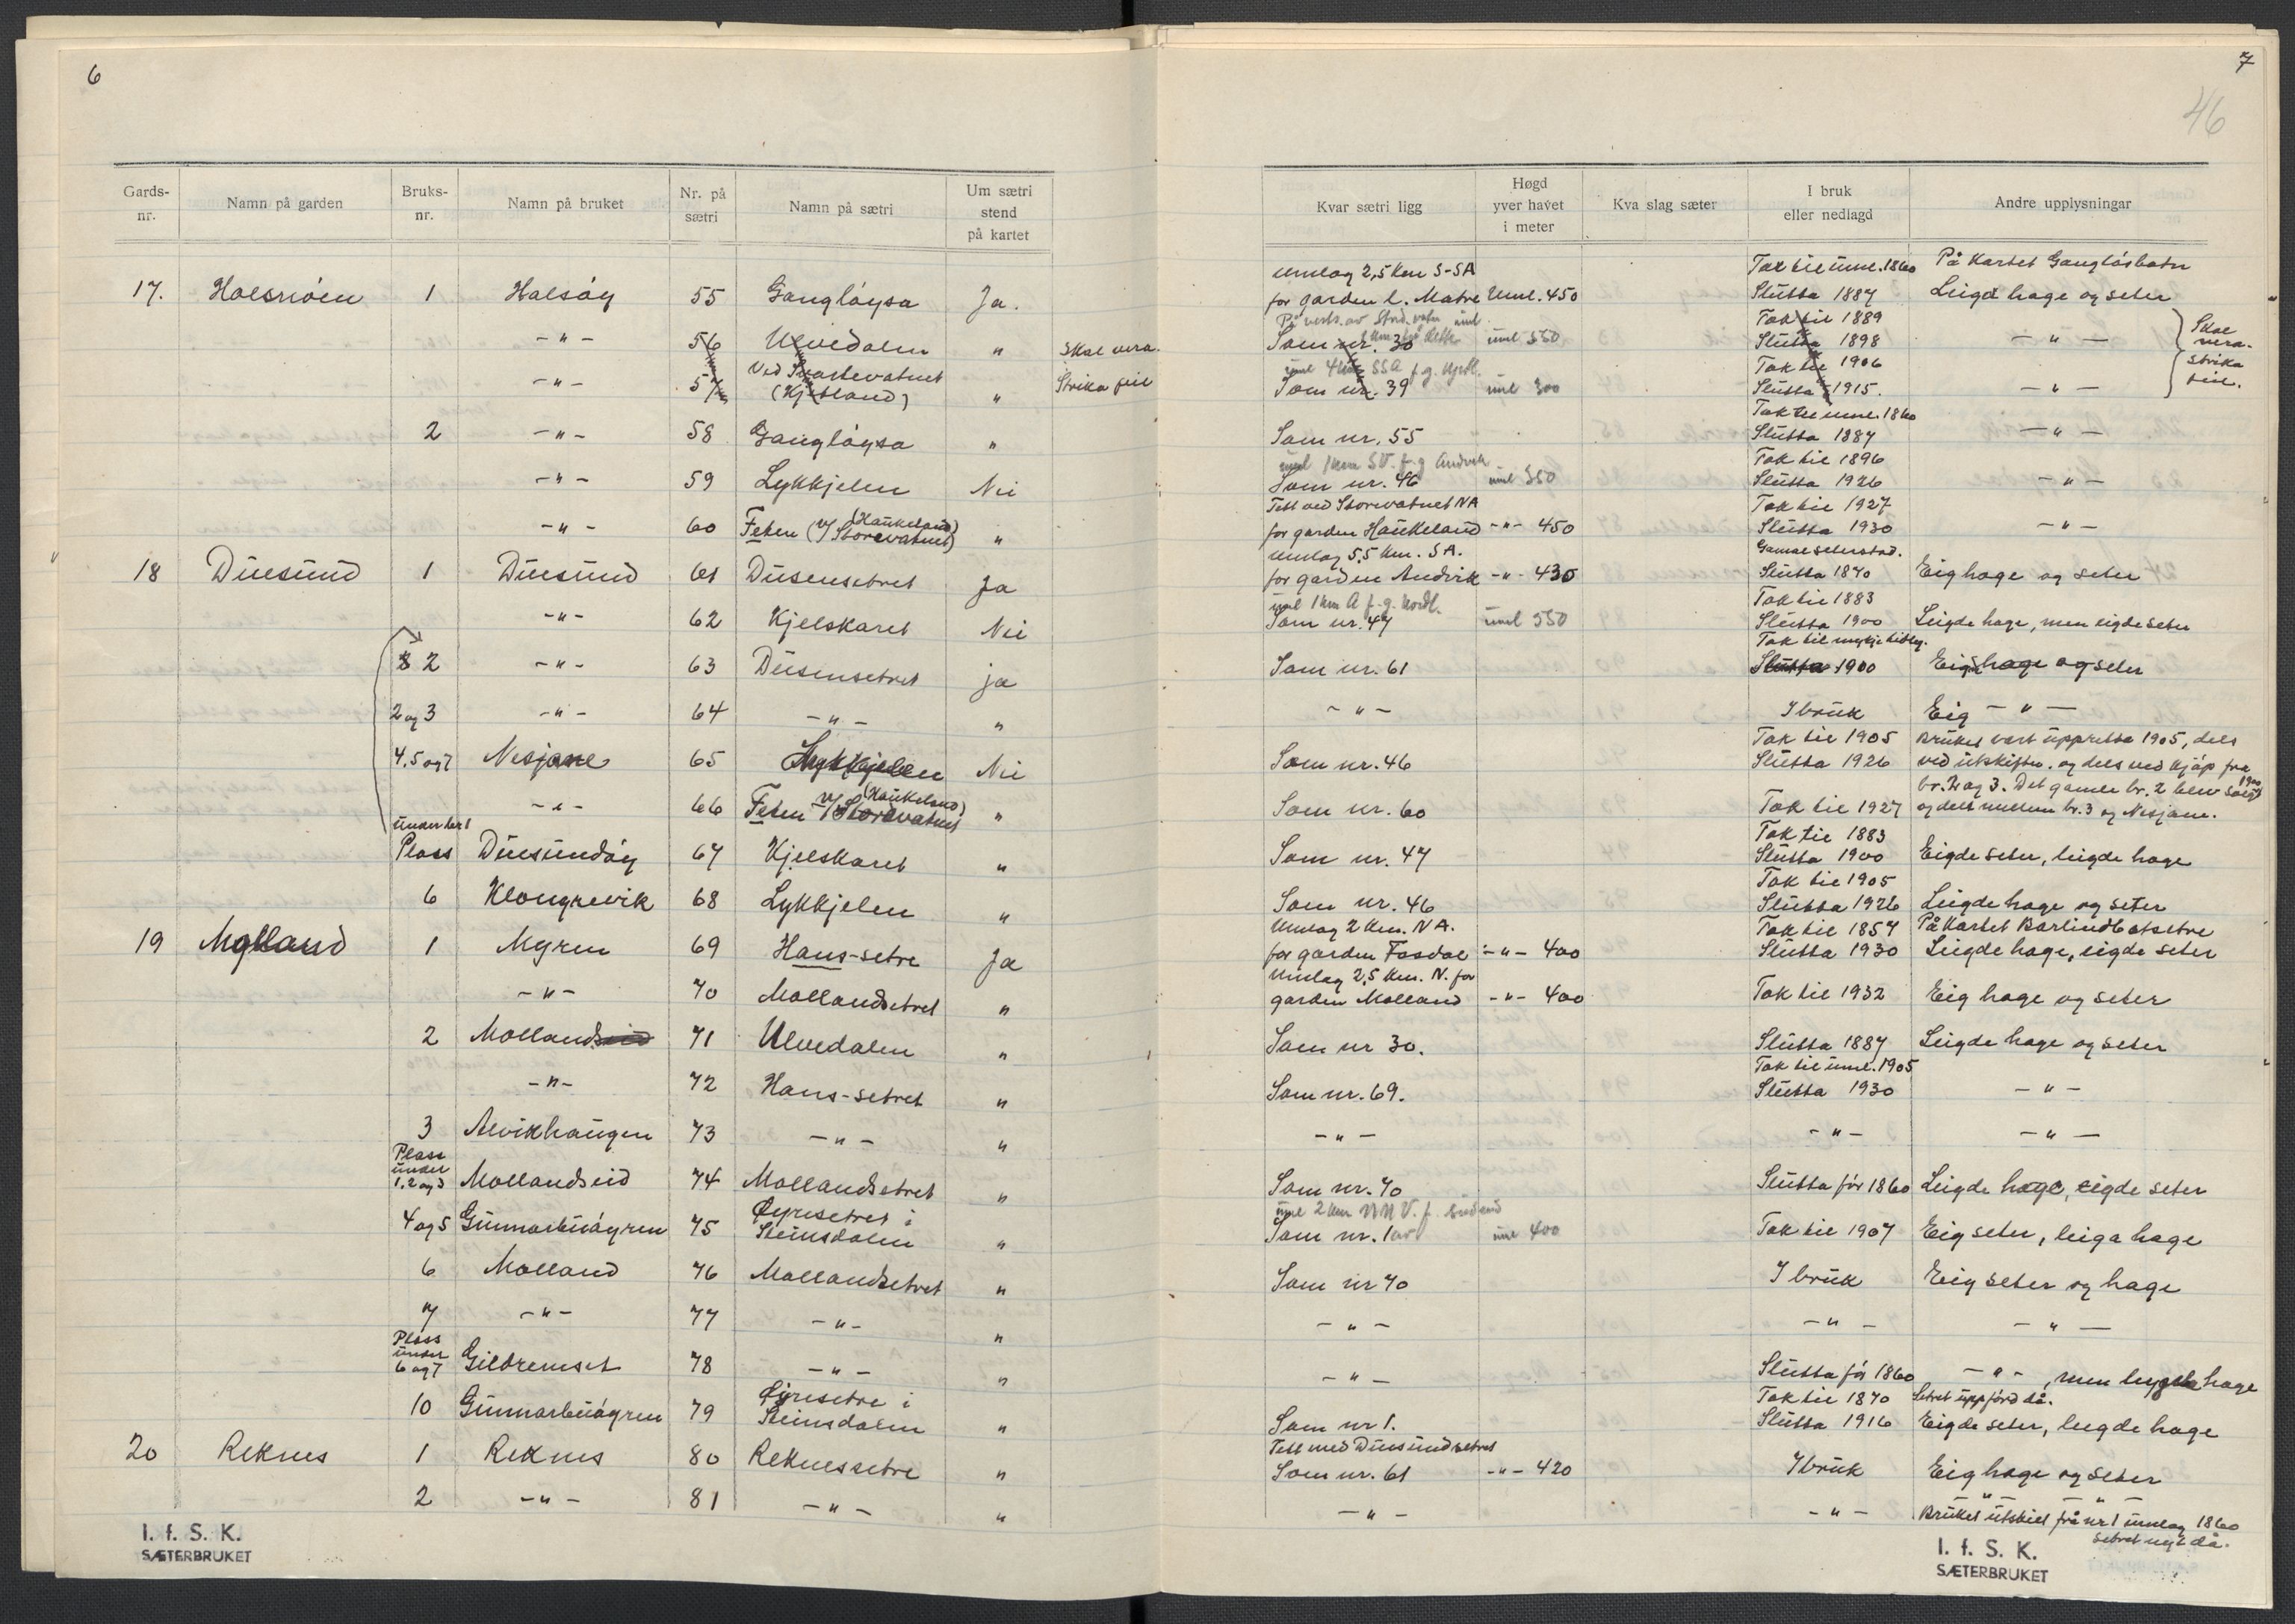 6
Gards-nr. Namn på garden Bruks-nr. Namn på bruket Nr. på sætri Namn på sætri Um sætri stend på kartet
17. 1 Halsøy 55 Gangløysa Ja.
-"- 56 Ulvedalen " Skal vera.
-"- 57 Ved Svartevatnet (Kjetland) " Strika feil
2 -"- 58 Gangløysa "
-"- 59 Lykkjelen Nei
-"- 60 Feten (v/ Storevatnet) (Haukeland) "
18 Duesund 1 Duesund 61 Dusensetret Ja
-"- 62 Kjelskaret Nei
2 -"- 63 Dusensetret ja
2 og 3 -"- 64 -"- "
4, 5 og 7 Nesjane 65 Lykkjelen Nei
-"- 66 Feten v/ Storevatnet (Haukeland) "
Plass under br 1 Duesundøy 67 Kjelskaret "
6 Klongrevik 68 Lykkjelen "
19 Molland 1 Myren 69 Hans-setre Ja
-"- 70 Mollandsetret "
2 Mollandseid 71 Ulvedalen "
-"- 72 Hans-setret "
3 Alvikhaugen 73 -"- "
Plass under 1, 2 og 3 Mollandseid 74 Mollandsetret "
4 og 5 Gunnarbuøyren 75 Øyresetret i Steinsdalen "
6 Molland 76 Mollandsetret "
7 -"- 77 -"- "
Plass under 6 og 7 Gildremset 78 -"- "
10 Gunnarbuøyren 79 Øyresetre i Steinsdalen "
20 Reknes 1 Reknes 80 Reknessetre "
2 -"- 81 -"- "
I. f. S. K.
SÆTERBRUKET
7
46
Kvar sætri ligg Høgd yver havet i meter Kva slag sæter I bruk eller nedlagd Andre upplysningar
Umlag 2,5 km S-SA Tok til uml. 1860 På kartet Gangløsbotn
for garden l. Matre Uml. 450 Slutta 1887 Leigde hage og seter
Tok til 1889
Som nr. 30 uml 550 Slutta 1898 -"- Skal vera.
uml 4 km SSA f. g. Tok til 1906 Strika feil.
Som nr. 39 uml 300 Slutta 1915. -"-
Tok til uml. 1860
Som nr. 55 Slutta 1887 -"-
uml 1 km SV. f. g Andvik Tok til 1896
Som nr. 46 uml 350 Slutta 1926 -"-
Tett ved Storevatnet NA Tok til 1927
for garden Haukeland -"- 450 Slutta 1930 -"-
Umlag 5,5 km. SA. Gamal seterstad.
for garden Andvik -"- 430 Slutta 1870 Eig hage og seter
uml 1 km A f. g. Tok til 1883
Som nr. 47 uml 550 Slutta 1900 Leigde hage, men eigde seter
Tok til mykje tidleg.
Som nr. 61 Slutta 1900 Eigde hage og seter
-"- I bruk Eig -"-
Tok til 1905 Bruket vart uppretta 1905, dels
Som nr. 46 Slutta 1926 ved utskiftn. og dels ved kjøp fra
br. 2 og 3. Det gamle br. 2 blev solgt 1900
Som nr. 60 Tok til 1927 og delt mellem br. 3 og Nesjane.
Tok til 1883
Som nr. 47 Slutta 1900 Eigde seter, leigde hage
Tok til 1905
Som nr. 46 Slutta 1926 Leigde hage og seter
Umlag 2 km. NA. Tok til 1857 På kartet Barlindbotsetre
for garden Fosdal -"- 400 Slutta 1930 Leigde hage, eigde seter
Umlag 2,5 km. N. for
garden Molland -"- 400 Tok til 1932 Eig hage og seter
Som nr 30. Slutta 1887 Leigde hage og seter
Tok til uml. 1905
Som nr. 69. Slutta 1930 -"-
-"- -"- -"-
Som nr. 70 Slutta før 1860 Leigde hage, eigde seter
uml 2 km NNV. f.
Som nr. 1 uml 400 Tok til 1907 Eig seter, leiga hage
Som nr 70 I bruk Eig seter og hage
-"- -"- -"-
-"- Slutta før 1860 -"-, men leigde hage
Tok til 1870 Setret uppførd då.
Som nr 1. Slutta 1916 Eigde seter, leigde hage
Tett med Duesundsetret
Som nr. 61 -"- 420 I bruk Eig hage og seter
-"- -"- -"- -"-
Bruket utskilt frå nr 1 umlag 1860
Setret nyt då.
I. f. S. K.
SÆTERBRUKET